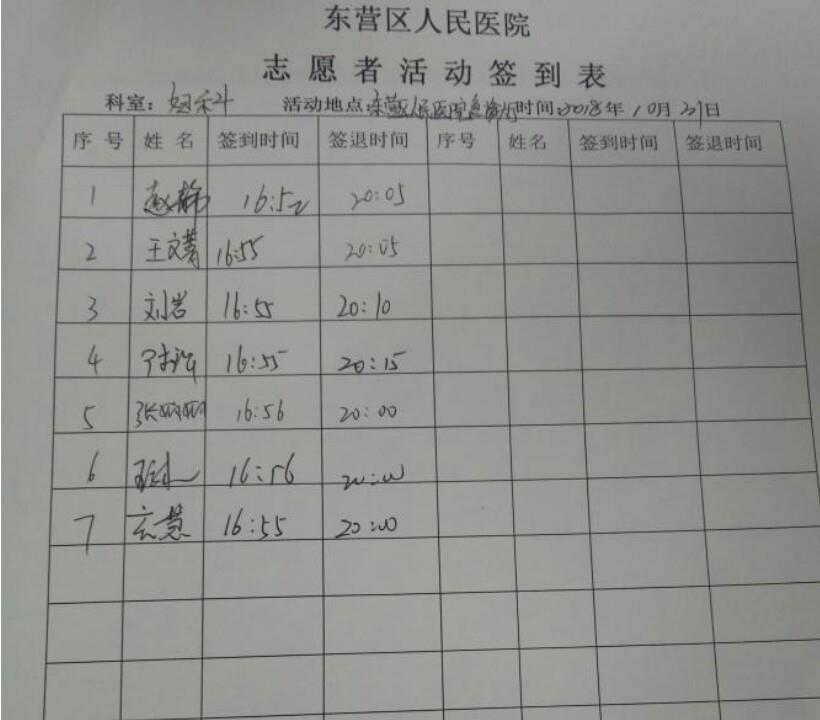 东营区人民医院
志愿者活动签到表
科室: 妇产科 活动地点:东营区人民医院门诊大厅 时间:2018年10月27日
序号 姓名 签到时间 签退时间 序号 姓名 签到时间 签退时间
1 赵静 16:52 20:05
2 王文菁 16:55 20:05
3 刘岩 16:55 20:10
4 16:55 20:15
5 张丽丽 16:56 20:00
6 16:56 20:00
7 云慧 16:55 20:00